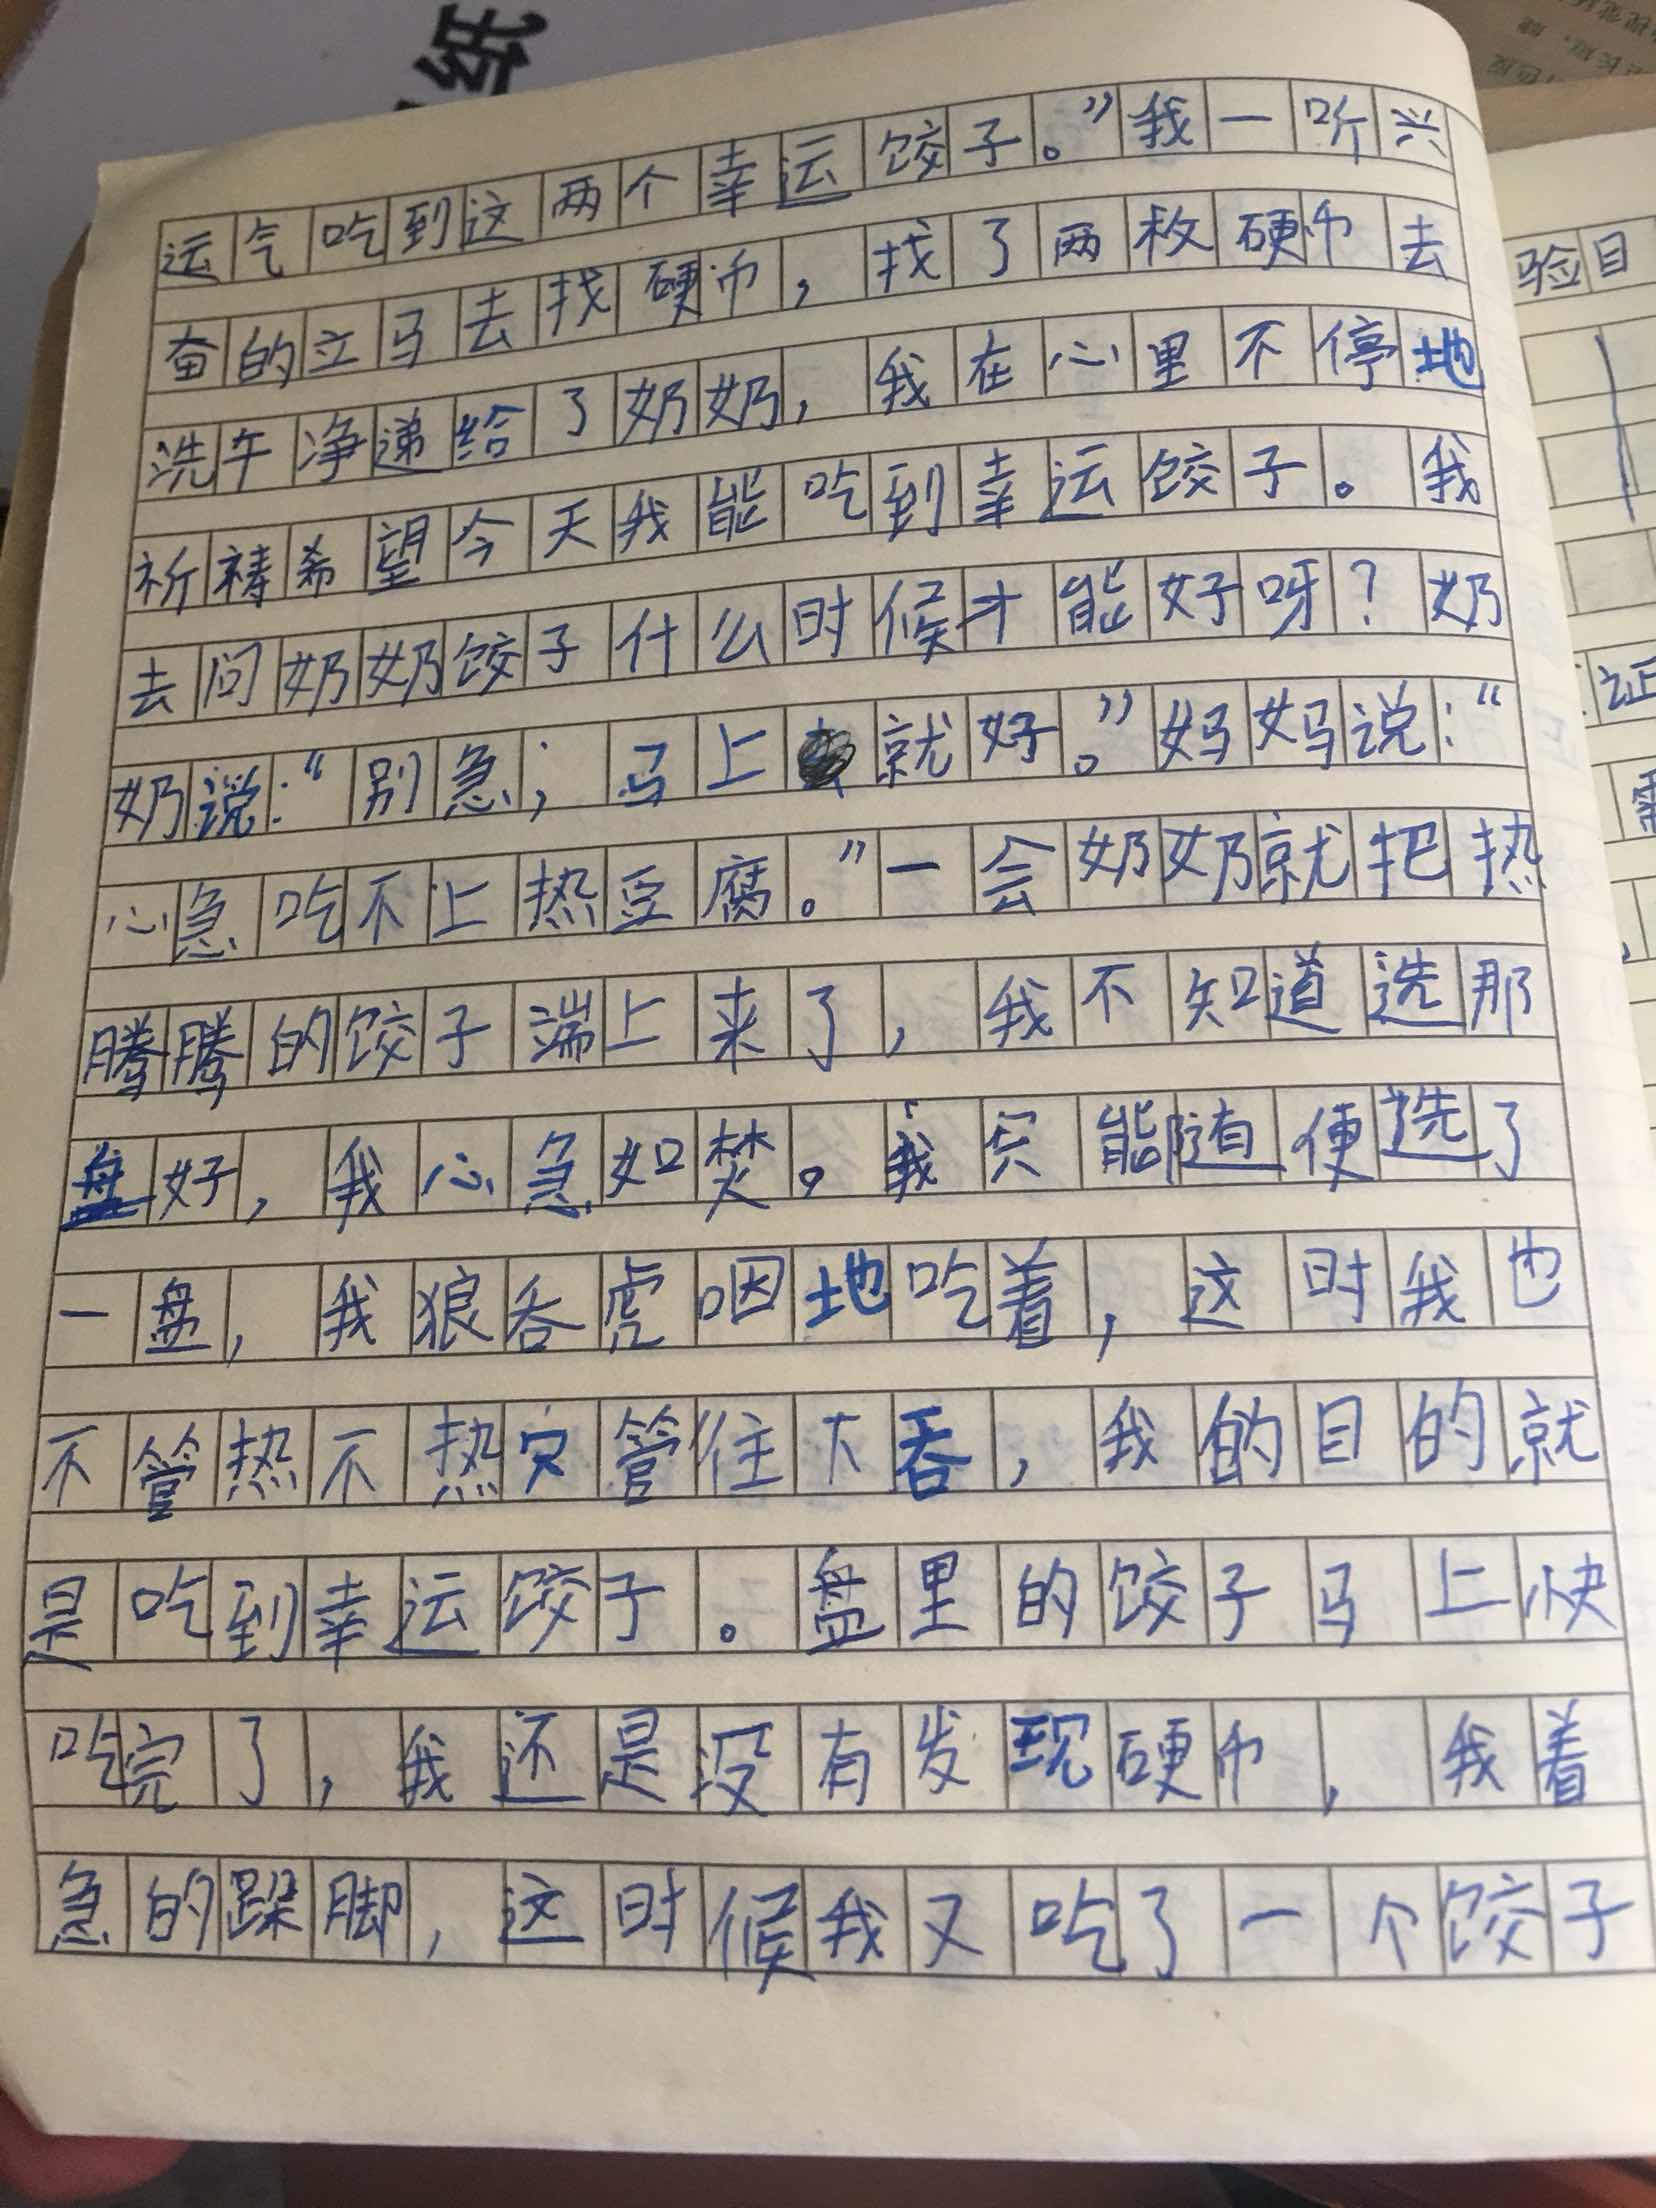 运气吃到这两个幸运饺子。”我一听兴
奋的立马去找硬币，找了两枚硬币去
洗干净递给了奶奶，我在心里不停地
祈祷希望今天我能吃到幸运饺子。我
去问奶奶饺子什么时候才能好呀？奶
奶说：“别急；马上就好。”妈妈说：“
心急吃不上热豆腐。”一会奶奶就把热
腾腾的饺子端上来了，我不知道选那
盘好，我心急如焚。我只能随便选了
一盘，我狼吞虎咽地吃着，这时我也
不管热不热只管往下吞，我的目的就
是吃到幸运饺子。盘里的饺子马上快
吃完了，我还是没有发现硬币，我着
急的跺脚，这时候我又吃了一个饺子
验目
证